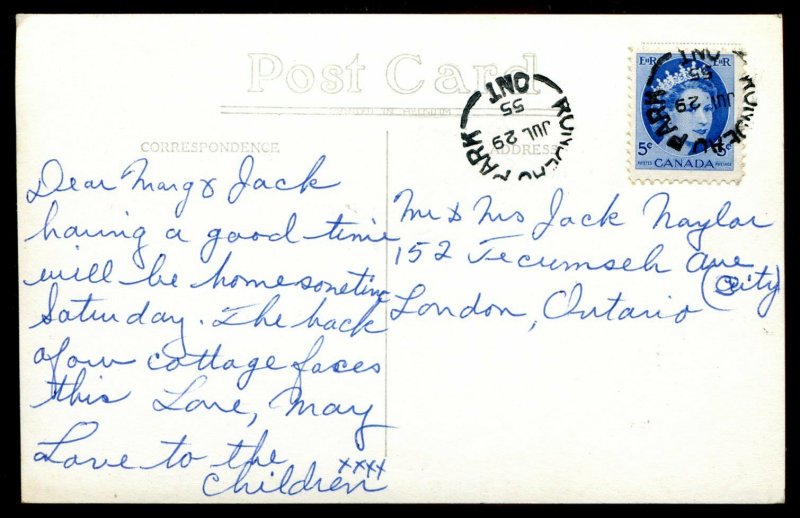 Post Card
CORRESPONDENCE
ADDRESS
RONDEAU PARK
JUL 29
55
ONT
RONDEAU PARK
JUL 29
55
ONT
EIIR EIIR
5¢ 5¢
CANADA
POSTES POSTAGE
Dear Marg & Jack
having a good time
will be home sometime
Saturday. The back
of our cottage faces
this Love, May
Love to the
children xxxx
Mr & Mrs Jack Naylor
152 Tecumseh Ave
(City)
London, Ontario